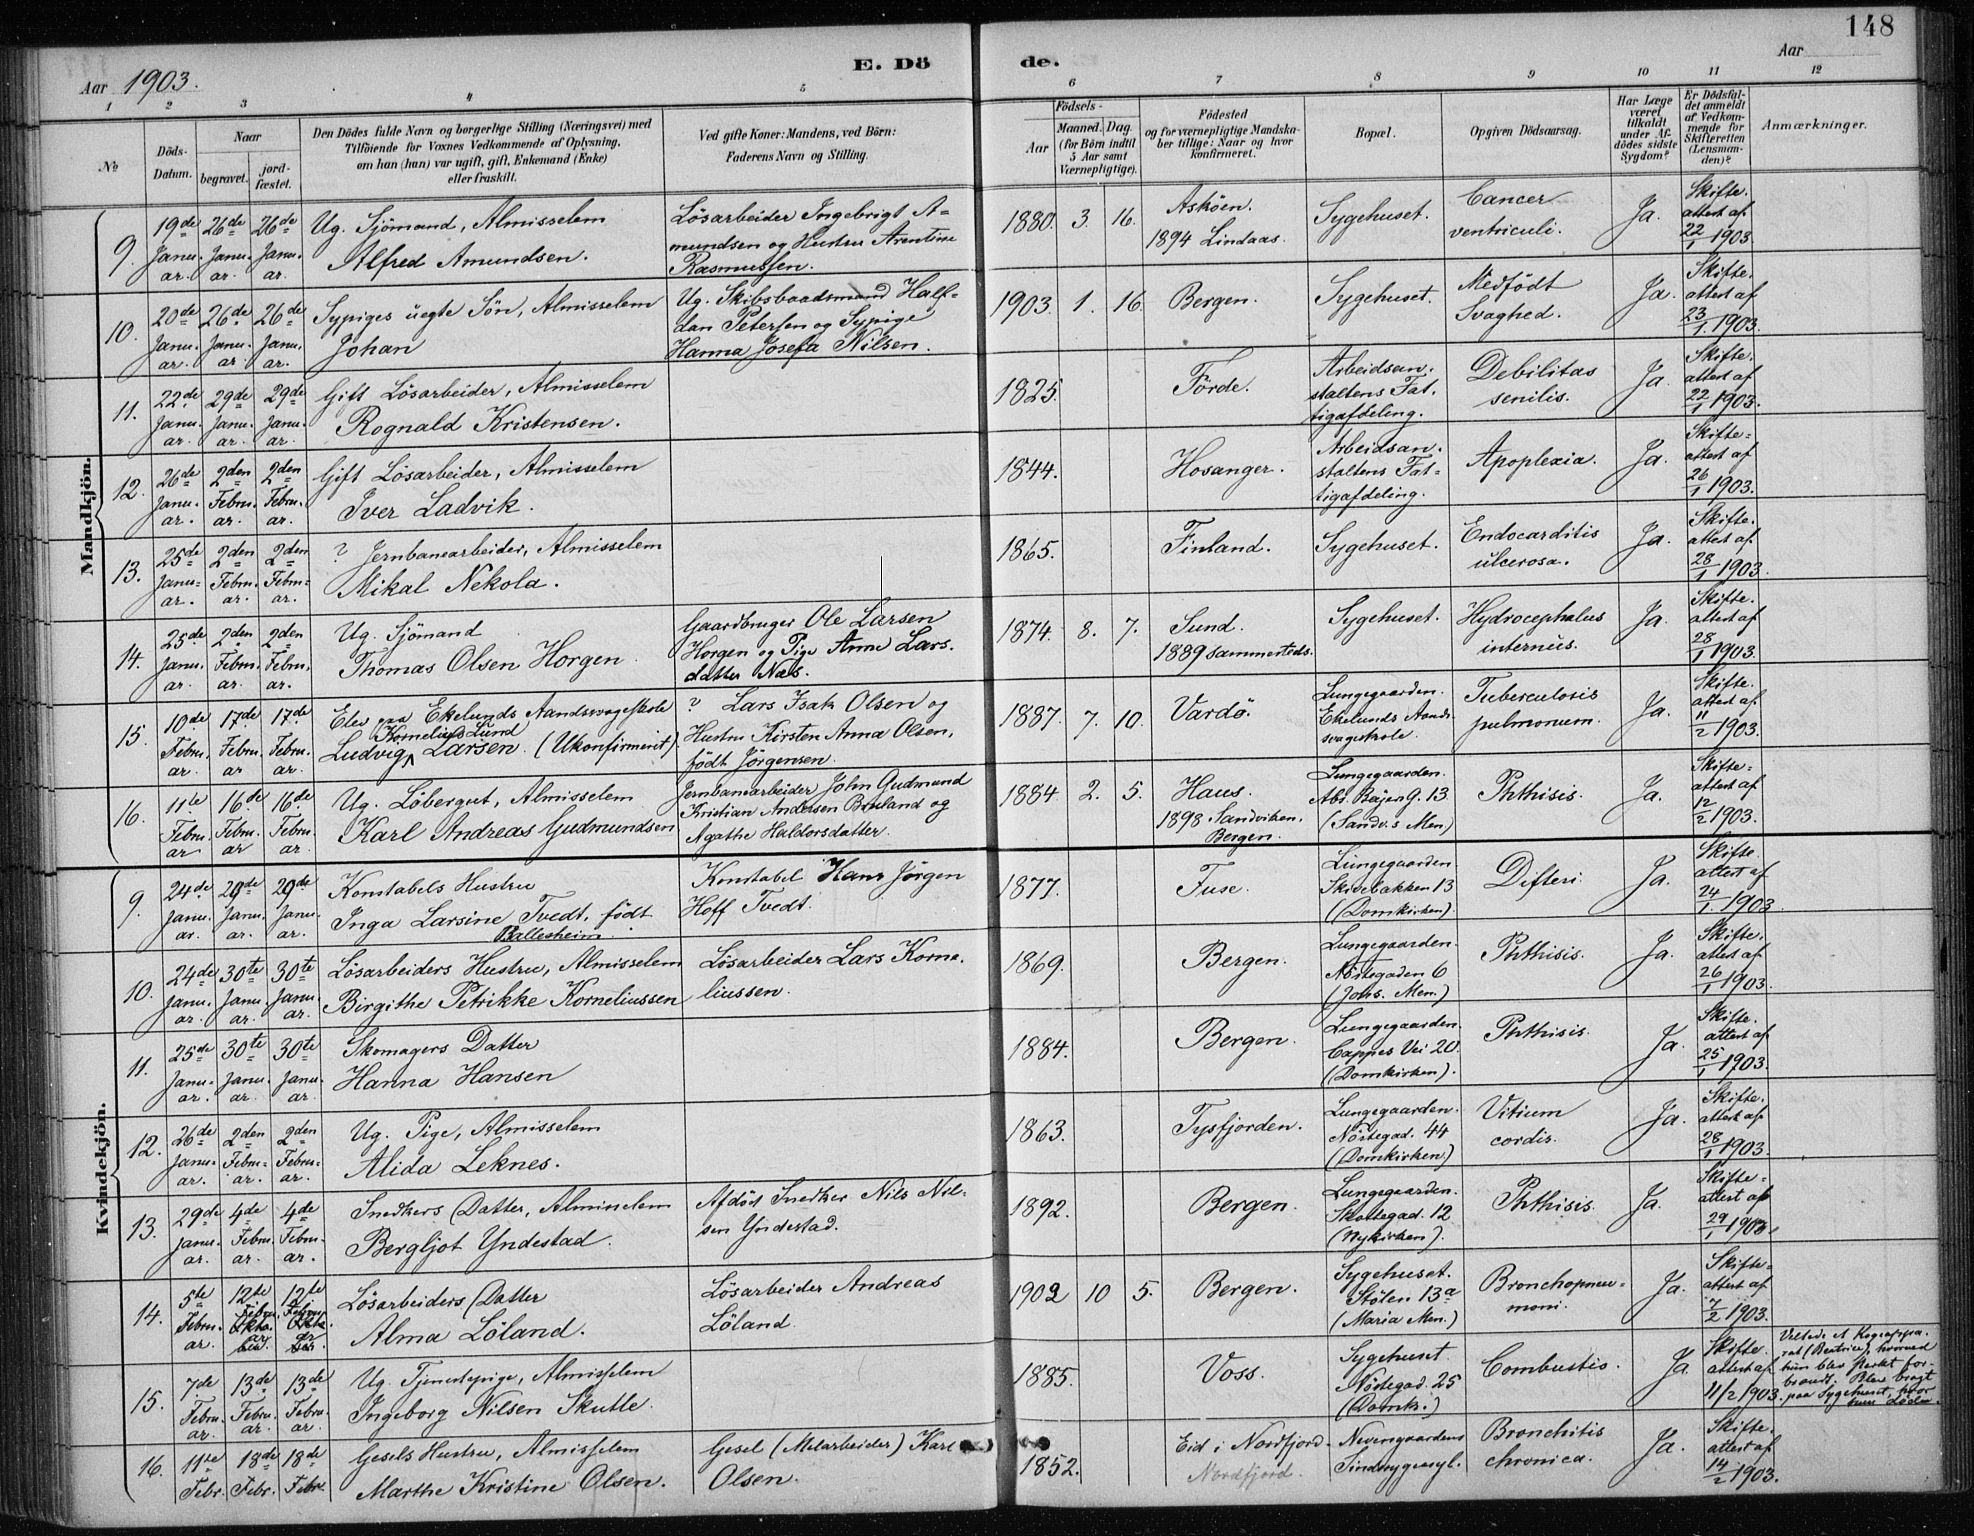 148
E. Dö de.
Aar 1903.
Aar
1 2 3 4 5 6 7 8 9 10 11 12
№
Döds-Datum.
Naar
begravet.
jord-fæstet.
Den Dödes fulde Navn og borgerlige Stilling (Næringsvei) med
Tilföiende for Voxnes Vedkommende af Oplysning,
om han (hun) var ugift, gift, Enkemand (Enke)
eller fraskilt.
Ved gifte Koner: Mandens, ved Börn:
Faderens Navn og Stilling.
Födsels-
Aar
Maaned. Dag.
(for Börn indtil
5 Aar samt
Værnepligtige).
Födested
og for værnepligtige Mandska-
ber tillige: Naar og hvor
konfirmeret.
Bopæl.
Opgiven Dödsaarsag.
Har Læge
været
tilkaldt
under Af-
dödes sidste
Sygdom?
Er Dödsfal-
det anmeldt
af Vedkom-
mende for
Skifteretten
(Lensman-
den)?
Anmærkninger.
Mandkjön.
9. 19de Januar. 26de Januar. 26de Januar. Ug. Sjömand, Almisselem
Alfred Amundsen.
Lösarbeider Ingebrigt A-
mundsen og Hustru Arentine
Rasmussen.
1880. 3. 16. Asköen.
1894 Lindaas.
Sygehuset.
Cancer
ventriculi.
Ja.
Skifte-
attest af
22/1 1903.
10. 20de Januar. 26de Januar 26de Januar. Sypiges uegte Sön, Almisselem
Johan
Ug. Skibsbaadsmand Half-
dan Petersen og Sypige
Hanna Josefa Nilsen.
1903. 1. 16. Bergen.
Sygehuset.
Medfödt
Svaghed.
Ja.
Skifte.
attest af
23/1 1903.
11. 22de Januar. 29de Januar. 29de Januar. Gift Lösarbeider, Almisselem
Rognald Kristensen.
1825. Förde.
Arbeidsan-
staltens Fat-
tigafdeling.
Debilitas
senilis.
Ja.
Skifte.
attest af
22/1 1903.
12. 26de Januar. 2den Februar. 2den Februar. Gift Lösarbeider, Almisselem
Iver Ladvik.
1844. Hosanger.
Arbeidsan-
staltens Fat-
tigafdeling.
Apoplexia.
Ja.
Skifte-
attest af
26/1 1903.
13. 25de Januar. 2den Februar. 2den Februar. ? Jernbanearbeider, Almisselem
Mikal Nekola.
1865. Finland.
Sygehuset.
Endocarditis
ulcerosa.
Ja.
Skifte.
attest af
28/1 1903.
14. 25de Januar. 2den Februar. 2den Februar. Ug. Sjömand
Thomas Olsen Horgen
Gaardbruger Ole Larsen
Horgen og Pige Anne Lars-
datter Næs.
1874. 8. 7. Sund.
1889 sammesteds.
Sygehuset.
Hydrocephalus
internus.
Ja.
Skifte.
attest af
28/1 1903.
15. 10de Februar. 17de Februar 17de Februar. Elev paa Ekelunds Aandssvageskole
Kornelius Lund
Ludvig Larsen. (Ukonfirmeret).
? Lars Isak Olsen og
Hustru Kirsten Anna Olsen,
födt Jörgensen.
1887. 7. 10. Vardö.
Lungegaarden.
Ekelunds Aands-
svageskole.
Tuberculosis
pulmonum.
Ja.
Skifte.
attest af
11/2 1903.
16. 11te Februar 16de Februar 16de Februar. Ug. Löbergut, Almisselem
Karl Andreas Gudmundsen
Jernbanearbeider John Gudmund
Kristian Andersen og
Agathe Haldorsdatter.
1884 2. 5. Haus.
1898 Sandviken,
Bergen.
Lungegaarden.
Abs. Beyer G. 13
(Sandv.s Men)
Phthisis.
Ja.
Skifte-
attest af
12/2 1903.
Kvindekjön.
9. 24de Januar. 29de Januar. 29de Januar. Konstabels Hustru
Inga Larsine Tvedt, födt
Ballesheim.
Konstabel Hans Jörgen
Hoff Tvedt.
1877. Fuse.
Lungegaarden
Skivebakken 13
(Domkirken).
Difteri.
Ja.
Skifte.
attest af
24/1 1903
10. 24de Januar. 30te Januar. 30te Januar. Lösarbeiders Hustru, Almisselem
Birgithe Petrikke Korneliussen
Lösarbeider Lars Korne-
liussen.
1869. Bergen.
Lungegaarden.
Nöstegaden 6
(Johs. Men.)
Phthisis.
Ja.
Skifte.
attest af
26/1 1903.
11. 25de Januar. 30te Januar. 30te Januar. Skomagers Datter
Hanna Hansen
1884. Bergen.
Lungegaarden.
Cappes Vei 20.
(Domkirken).
Phthisis.
Ja.
Skifte.
attest af
25/1 1903.
12. 26de Januar. 2den Februar. 2den Februar. Ug. Pige, Almisselem
Alida Leknes.
1863. Tysfjorden.
Lungegaarden.
Nöstegad. 44
(Domkirken)
Vitium
cordis.
Ja.
Skifte.
attest af
28/1 1903.
13. 29de Januar. 4de Februar. 4de Februar. Snedkers Datter, Almisselem
Bergljot Yndestad.
Afdöd Snedker Nils Nil-
sen Yndestad.
1892. Bergen.
Lungegaarden.
Skottegad. 12
(Nykirken).
Phthisis.
Ja.
Skifte-
attest af
29/1 1903.
14. 5te Februar. 12te Februar 12te Februar Lösarbeiders Datter
Alma Löland.
Lösarbeider Andreas
Löland.
1902 10 5. Bergen.
Sygehuset.
Stölen 13a
(Maria Men.)
Bronchopneu-
moni.
Ja.
Skifte-
attest af
7/2 1903.
15. 7de Februar. 13de Februar. 13de Februar. Ug. Tjenestepige, Almisselem
Ingeborg Nilsen Skutle.
1885. Voss.
Sygehuset
Nöstegad. 25
(Domk.)
Combustio.
Ja
Skifte.
attest af
11/2 1903.
Veltede et Kogeappa-
rat (Beatrice), hvorved
hun blev sterkt for-
brændt; Blev bragt
paa Sygehuset, hvor
hun döde.
16. 11te Febr. 18de Febr. 18de Febr. Gesels Hustru, Almisselem
Marthe Kristine Olsen.
Gesel (Metarbeider) Karl
Olsen.
1852. Eid i Nordfjord.
Nordfjord.
Nevengaardens
Sindssygeasyl.
Bronchitis
chronica.
Ja.
Skifte.
attest af
14/2 1903.